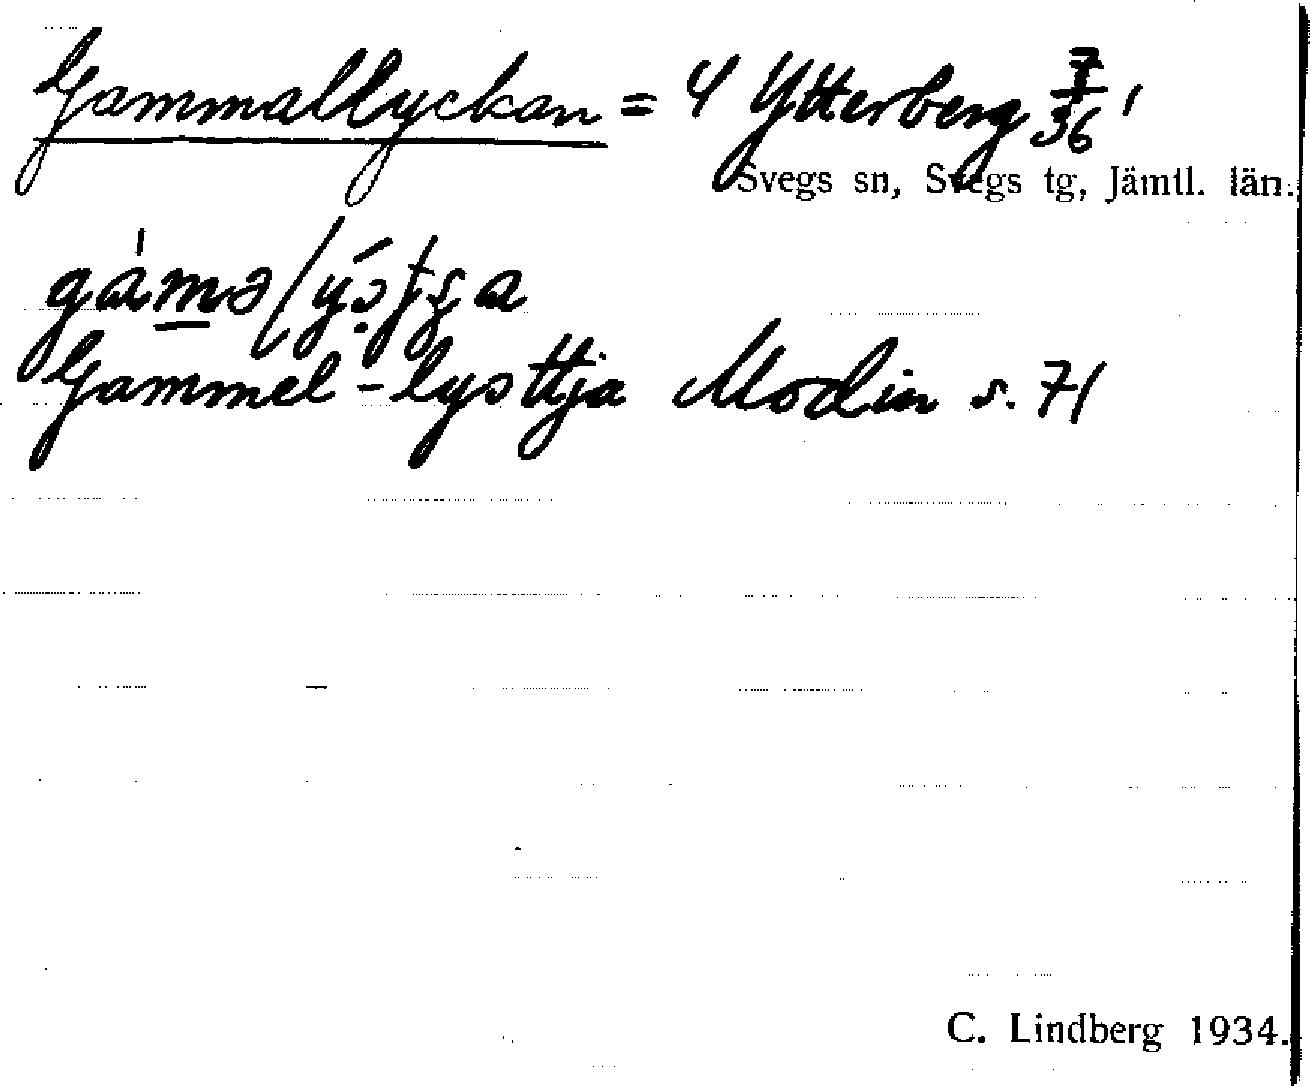 Gammallyckan = 4 Ytterberg 7/36
Svegs sn, Svegs tg, Jämtl. län.
Gammel-lysttja Modin s. 71
C. Lindberg 1934.